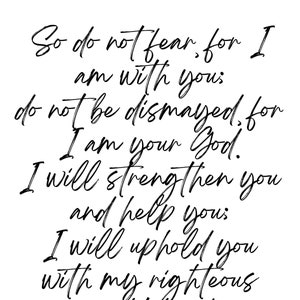 So do not fear, for I
am with you;
do not be dismayed, for
I am your God.
I will strengthen you
and help you;
I will uphold you
with my righteous